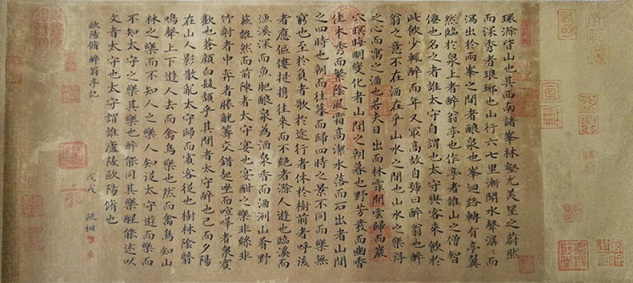 環滁皆山也其西南諸峯林壑尤美望之蔚然
而深秀者琅琊也山行六七里漸聞水聲潺〻而
瀉出於兩峯之間者釀泉也峯迴路轉有亭翼
然臨於泉上者醉翁亭也作亭者誰山之僧智
僊也名之者誰太守自謂也太守與客來飲於
此飲少輒醉而年又最高故自號曰醉翁也醉
翁之意不在酒在乎山水之間也山水之樂得
之心而寓之酒也若夫日出而林霏開雲歸而巖
穴暝晦明變化者山間之朝暮也野芳發而幽香
佳木秀而繁陰風霜高潔水落而石出者山間
之四時也朝而往暮而歸四時之景不同而樂無
窮也至於負者歌於途行者休於樹前者呼後
者應傴僂提攜往來而不絕者滁人遊也臨溪而
漁溪深而魚肥釀泉為酒泉香而酒洌山肴野
蔌雜然而前陳者太守宴也宴酣之樂非絲非
竹射者中弈者勝觥籌交錯坐起而諠譁者衆賓
歡也蒼顏白髮頹乎其間者太守醉也已而夕陽
在山人影散亂太守歸而賓客從也樹林陰翳
鳴聲上下遊人去而禽鳥樂也然而禽鳥知山
林之樂而不知人之樂人知從太守遊而樂而
不知太守之樂其樂也醉能同其樂醒能述以
文者太守也太守謂誰廬陵歐陽脩也
歐陽脩 醉翁亭記
戊戌 疏桐